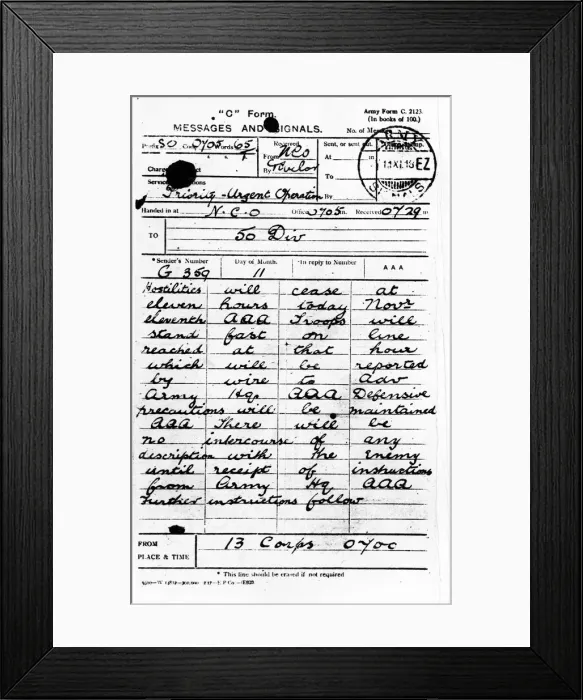 "C" Form.
Army Form C. 2123.
(In books of 100.)
MESSAGES AND SIGNALS.
No. of
SO 0705 65
Received
Sent, or sent out.
From NCO
At
By
To
Priority - Urgent Operation
By
Handed in at N.C.O Office 0705 m. Received 0729 m
11.XI.18 EZ
TO 50 Div
* Sender's Number Day of Month. In reply to Number A A A
G 369 11
Hostilities will cease at
eleven hours today Novr
eleventh AAA Troops will
stand fast on line
reached at that hour
which will be reported
by wire to Adv
Army Hq. AAA Defensive
precautions will be maintained
AAA There will be
no intercourse of any
description with the Enemy
until receipt of instructions
from Army Hq AAA
Further instructions follow
FROM 13 Corps 0700
PLACE & TIME
* This line should be erased if not required